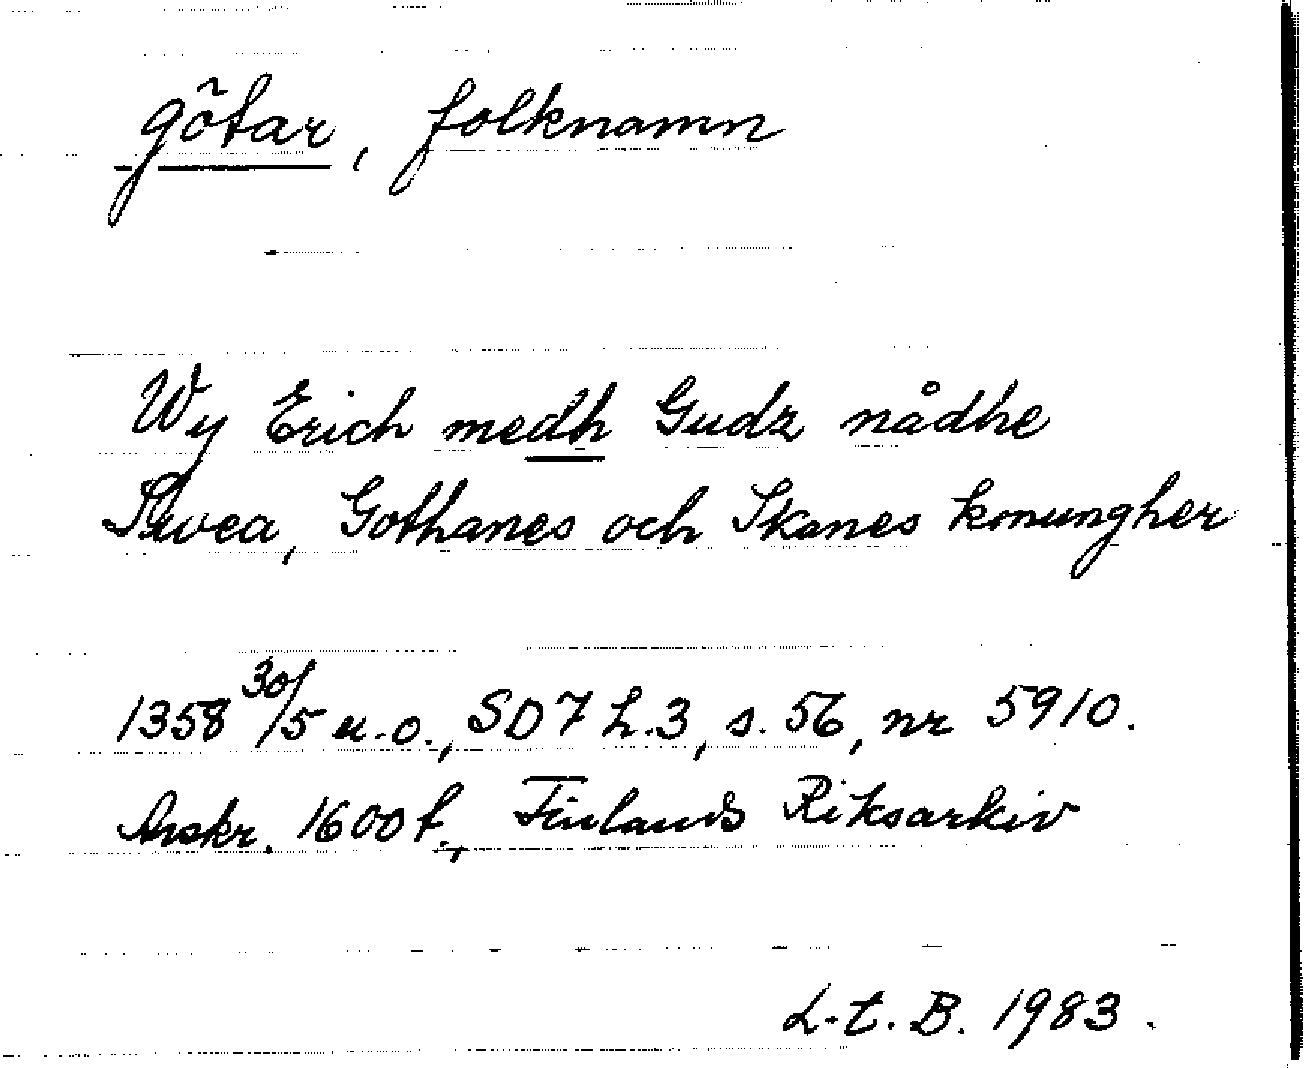 götar, folknamn
Wy Erich medh Gudz nådhe
Swea, Gothanes och Skanes konungher
1358 30/5 u.o., SD 7 h.3, s. 56, nr 5910.
Avskr. 1600 t., Finlands Riksarkiv
L.t.B. 1983.